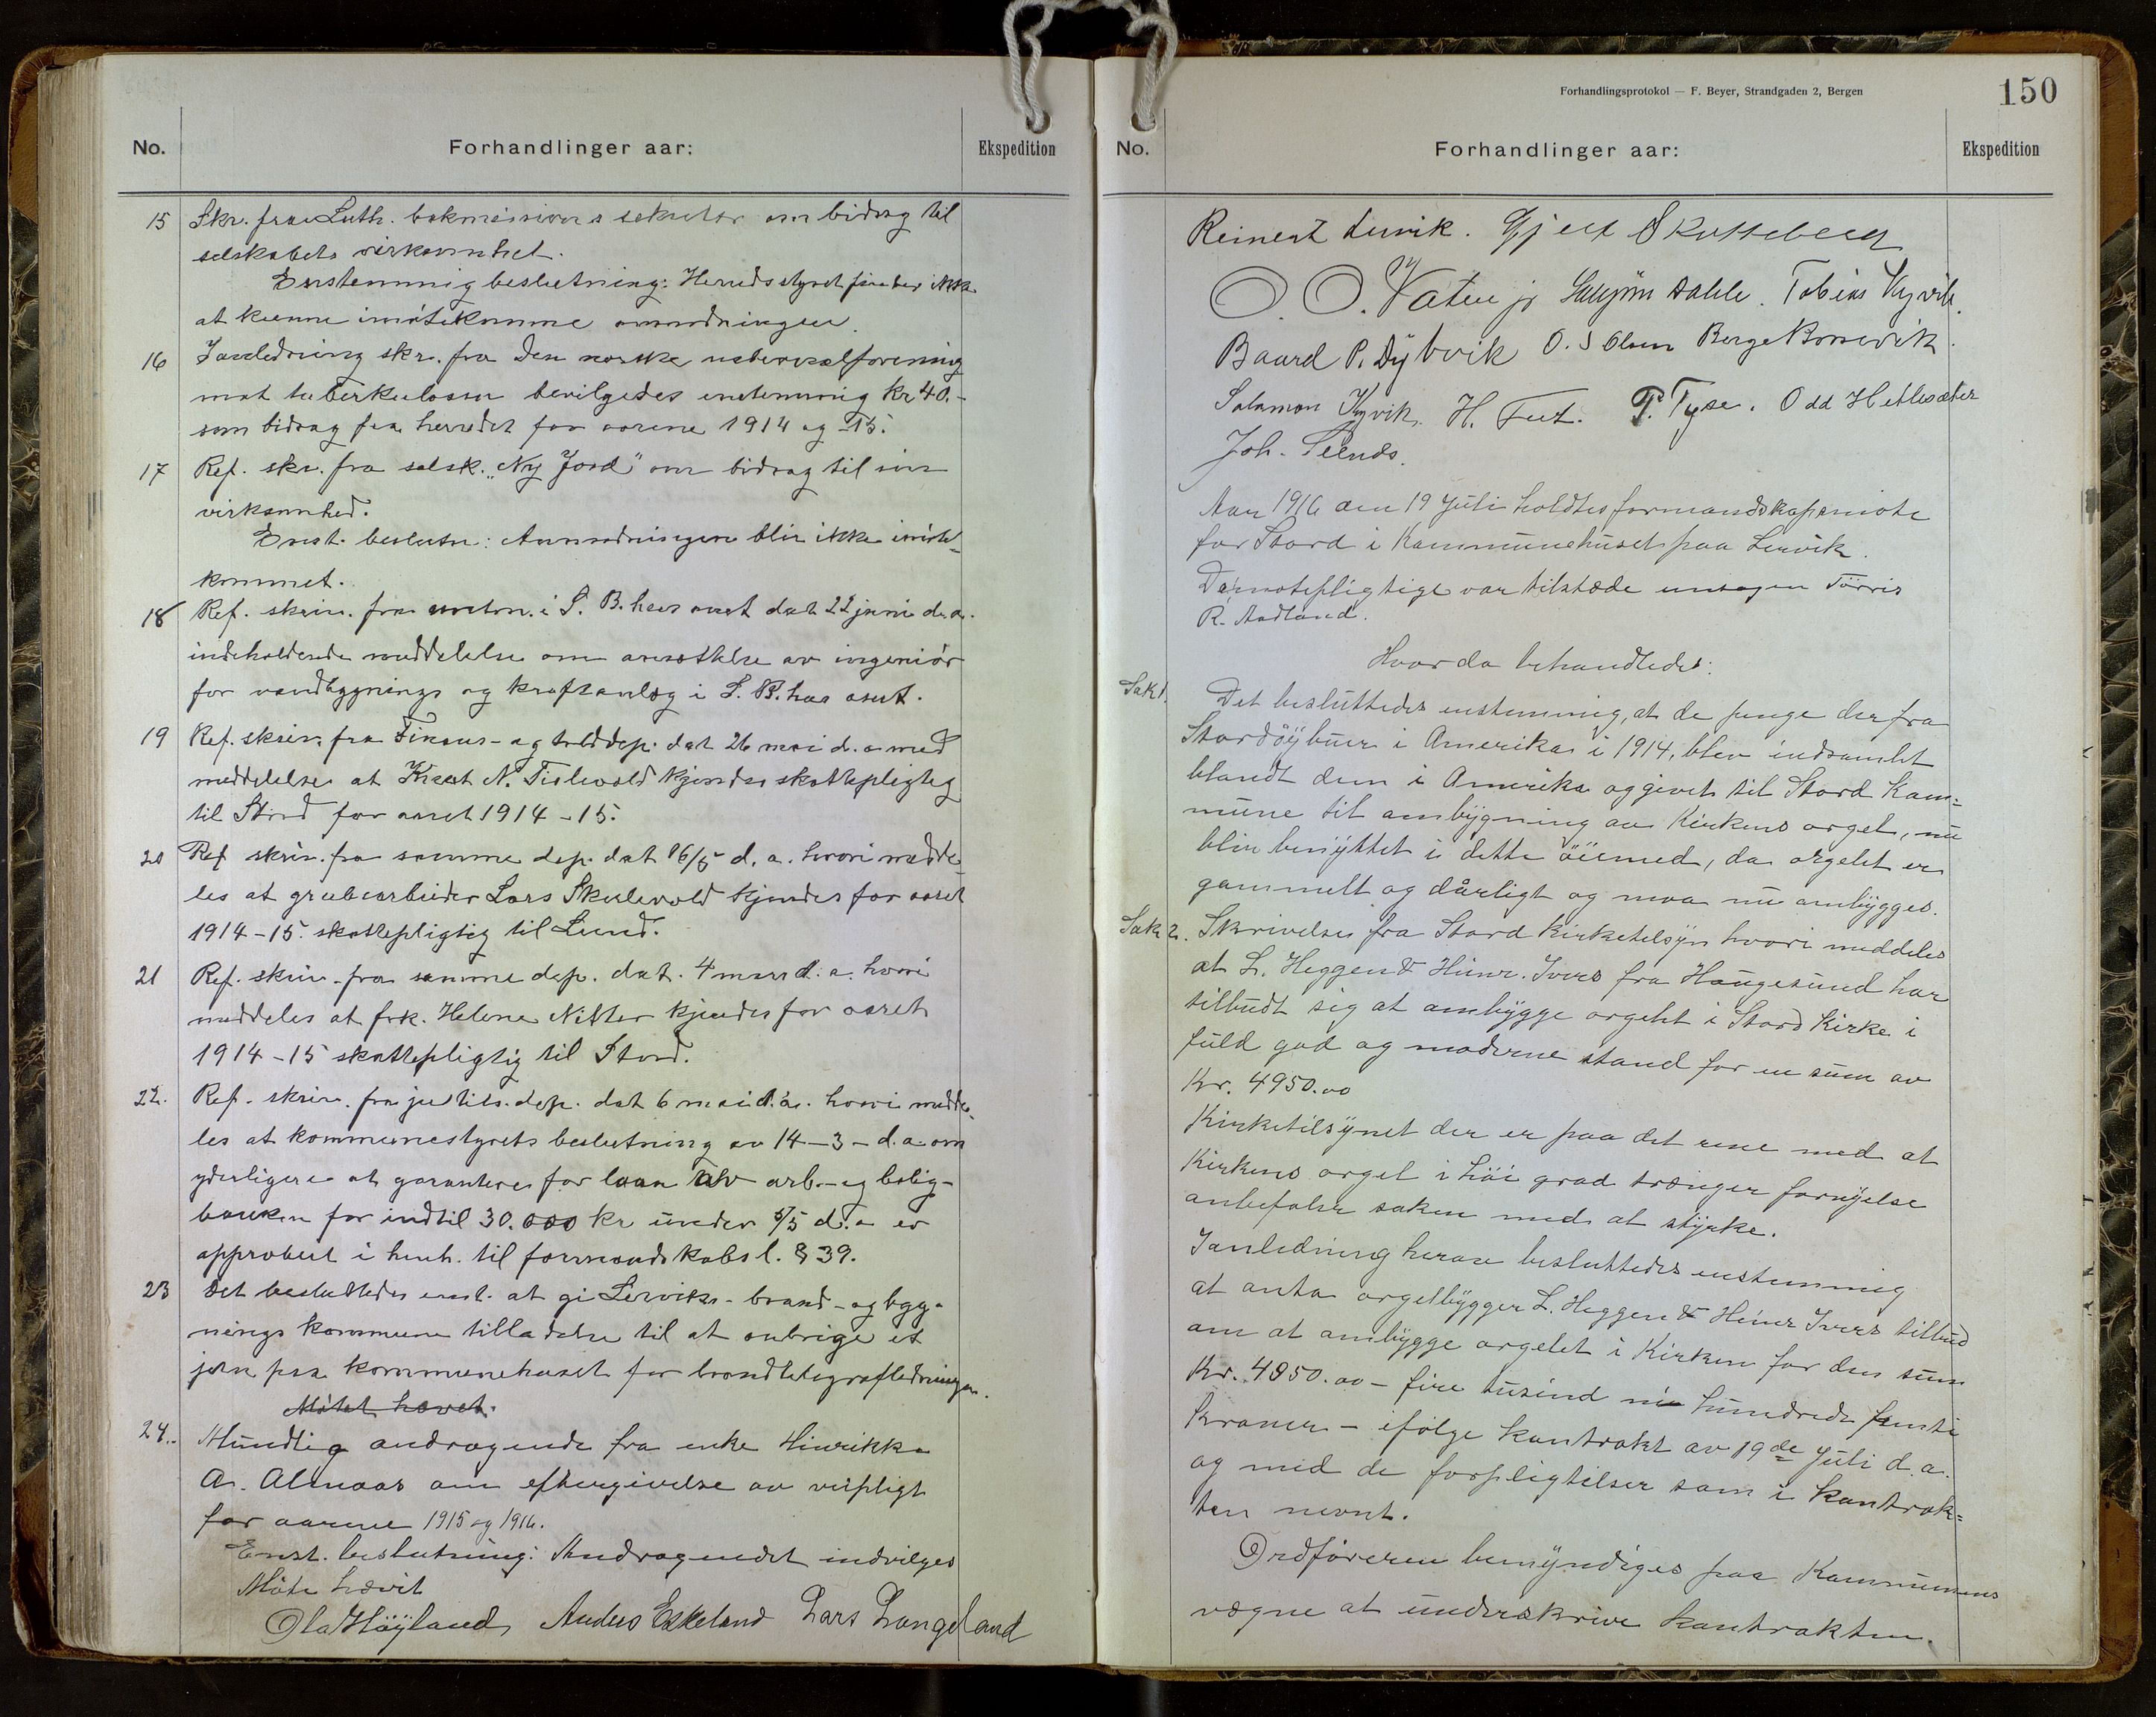 No.
Forhandlinger aar:
Ekspedition
15 Skr. fra Luth. bokmissions sekretær om bidrag til
selskabets virksomhet.
Enstemmig beslutning: Herredsstyret finder ikke
at kunne imøtekomme anmodningen.
16 I anledning skr. fra Den norske nationalforening
mot tuberkulosen bevilgedes enstemmig kr 40.-
som bidrag fra herredet for aarene 1914 og 15.
17 Ref. skr. fra selsk. "Ny Jord" om bidrag til sin
virksomhed.
Enst. beslutn: Anmodningen blir ikke imøte-
kommet.
18 Ref. skriv. fra amtm. i S. B.hus amt dat 22 juni d.a.
indeholdende meddelelse om ansættelse av ingeniør
for vandbygnings og kraftanlæg i S. B.hus amt.
19 Ref. skriv. fra Finans- og tolddep. dat 26 mai d. a med
meddelelse at Knut N. kjendes skattepligtig
til Stord for aaret 1914-15.
20 Ref skriv. fra samme dep. dat 16/5 d. a. hvori medde-
les at grubearbeider Lars Skulevold kjendes for aaret
1914-15 skattepligtig til Lund.
21 Ref. skriv. fra samme dep. dat. 4 mars d. a. hvori
meddeles at frk. Helene Nitter kjendes for aaret
1914-15 skattepligtig til Stord.
22. Ref. skriv. fra justits.dep. dat 6 mai d.a. hvori medde-
les at kommunestyrets beslutning av 14-3- d.a. om
yderligere at garantere for laan av arb.- og bolig-
banken for indtil 30.000 kr under 5/5 d. a er
approbert i henh. til formandskabsl. § 39.
23 Det besluttedes enst. at gi Lerviks- brand- og byg-
nings kommune tilladelse til at anbringe et
jern paa kommunehuset for brandtelegrafledningen.
Møtet hævet.
24. Mundtlig andragende fra enke Hinrikka
A. Almaas om eftergivelse av veipligt
for aarene 1915 og 1916.
Enst. beslutning: Andragendet indvilges
Møte hævit
Ola Høyland Anders Eskeland Lars Langeland
Forhandlingsprotokol — F. Beyer, Strandgaden 2, Bergen
150
No.
Forhandlinger aar:
Ekspedition
Reinert Lervik. Gjert
O. O. Vatne jr Dahle. Tobias Kyvik.
Baard P. Dybvik O. S Olsen Berge
Salomon Kyvik. H. P. Tyse. Odd Hetlesæter
Joh.
Aar 1916 den 19 Juli holdtes formandskapsmøte
for Stord i Kommunehuset paa Lervik.
De møtepligtige var tilstæde untagen Tørris
R. Aadland.
Hvor da behandledes:
Sak 1. Det besluttedes enstemmig, at de penge der fra
Stordöÿbuer i Amerika i 1914, blev indsamlet
blandt dem i Amerika og givet til Stord Kom=
mune til ombygning av Kirkens orgel, nu
blir benyttet i dette öiemed, da orgelet er
gammelt og dårligt og maa nu ombygges.
Sak 2. Skrivelse fra Stord Kirketilsyn hvori meddeles
at L. Heggen & Hinr. Ivers fra Haugesund har
tilbudt sig at ombygge orgelet i Stord Kirke i
fuld god og moderne stand for en sum av
Kr. 4950.00
Kirketilsynet der er paa det rene med at
Kirkens orgel i höi grad trænger fornyelse
anbefaler saken med at styrke.
I anledning herav besluttedes enstemmig
at anta orgelbygger L. Heggen & Heinr Ivers tilbud
om at ombygge orgelet i Kirken for den sum
Kr. 4950.00 - fire tusind ni hundrede femti
Kroner - ifølge kontrakt av 19de Juli d.a.
og med de forpligtelser som i kontrak=
ten nevnt.
Ordføreren bemyndiges paa Kommunens
vægne at underskrive kontrakten.